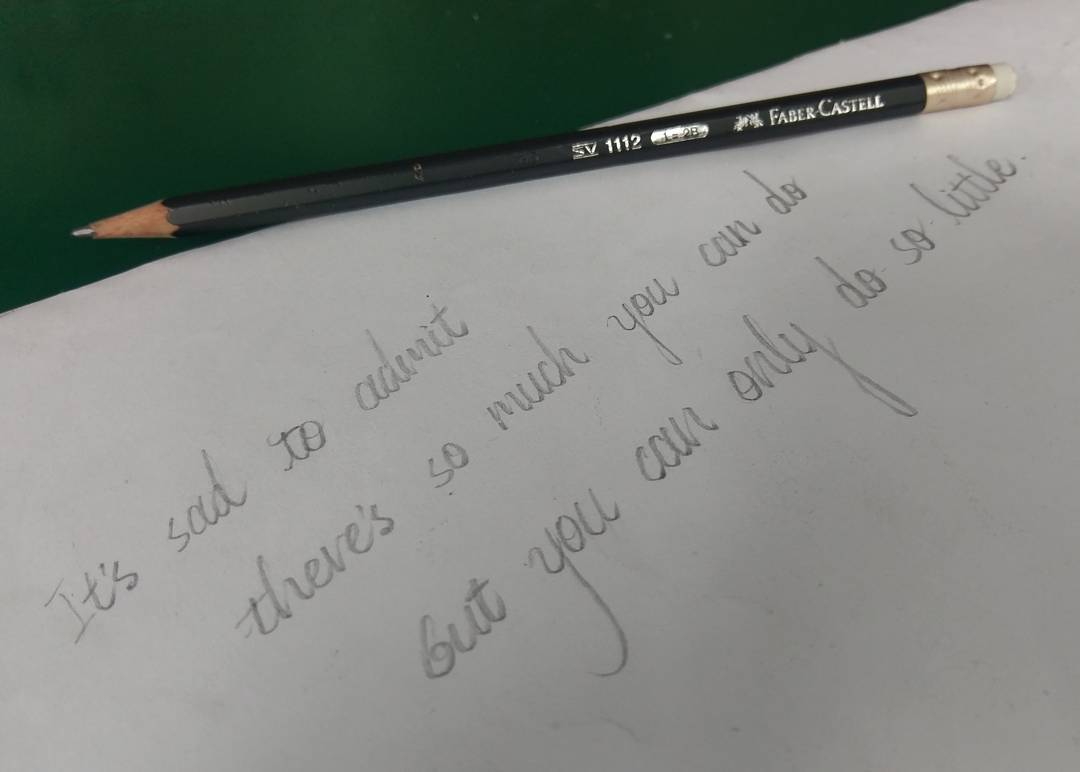 SV 1112 1=2B FABER-CASTELL
It's sad to admit
there's so much you can do
but you can only do so little.